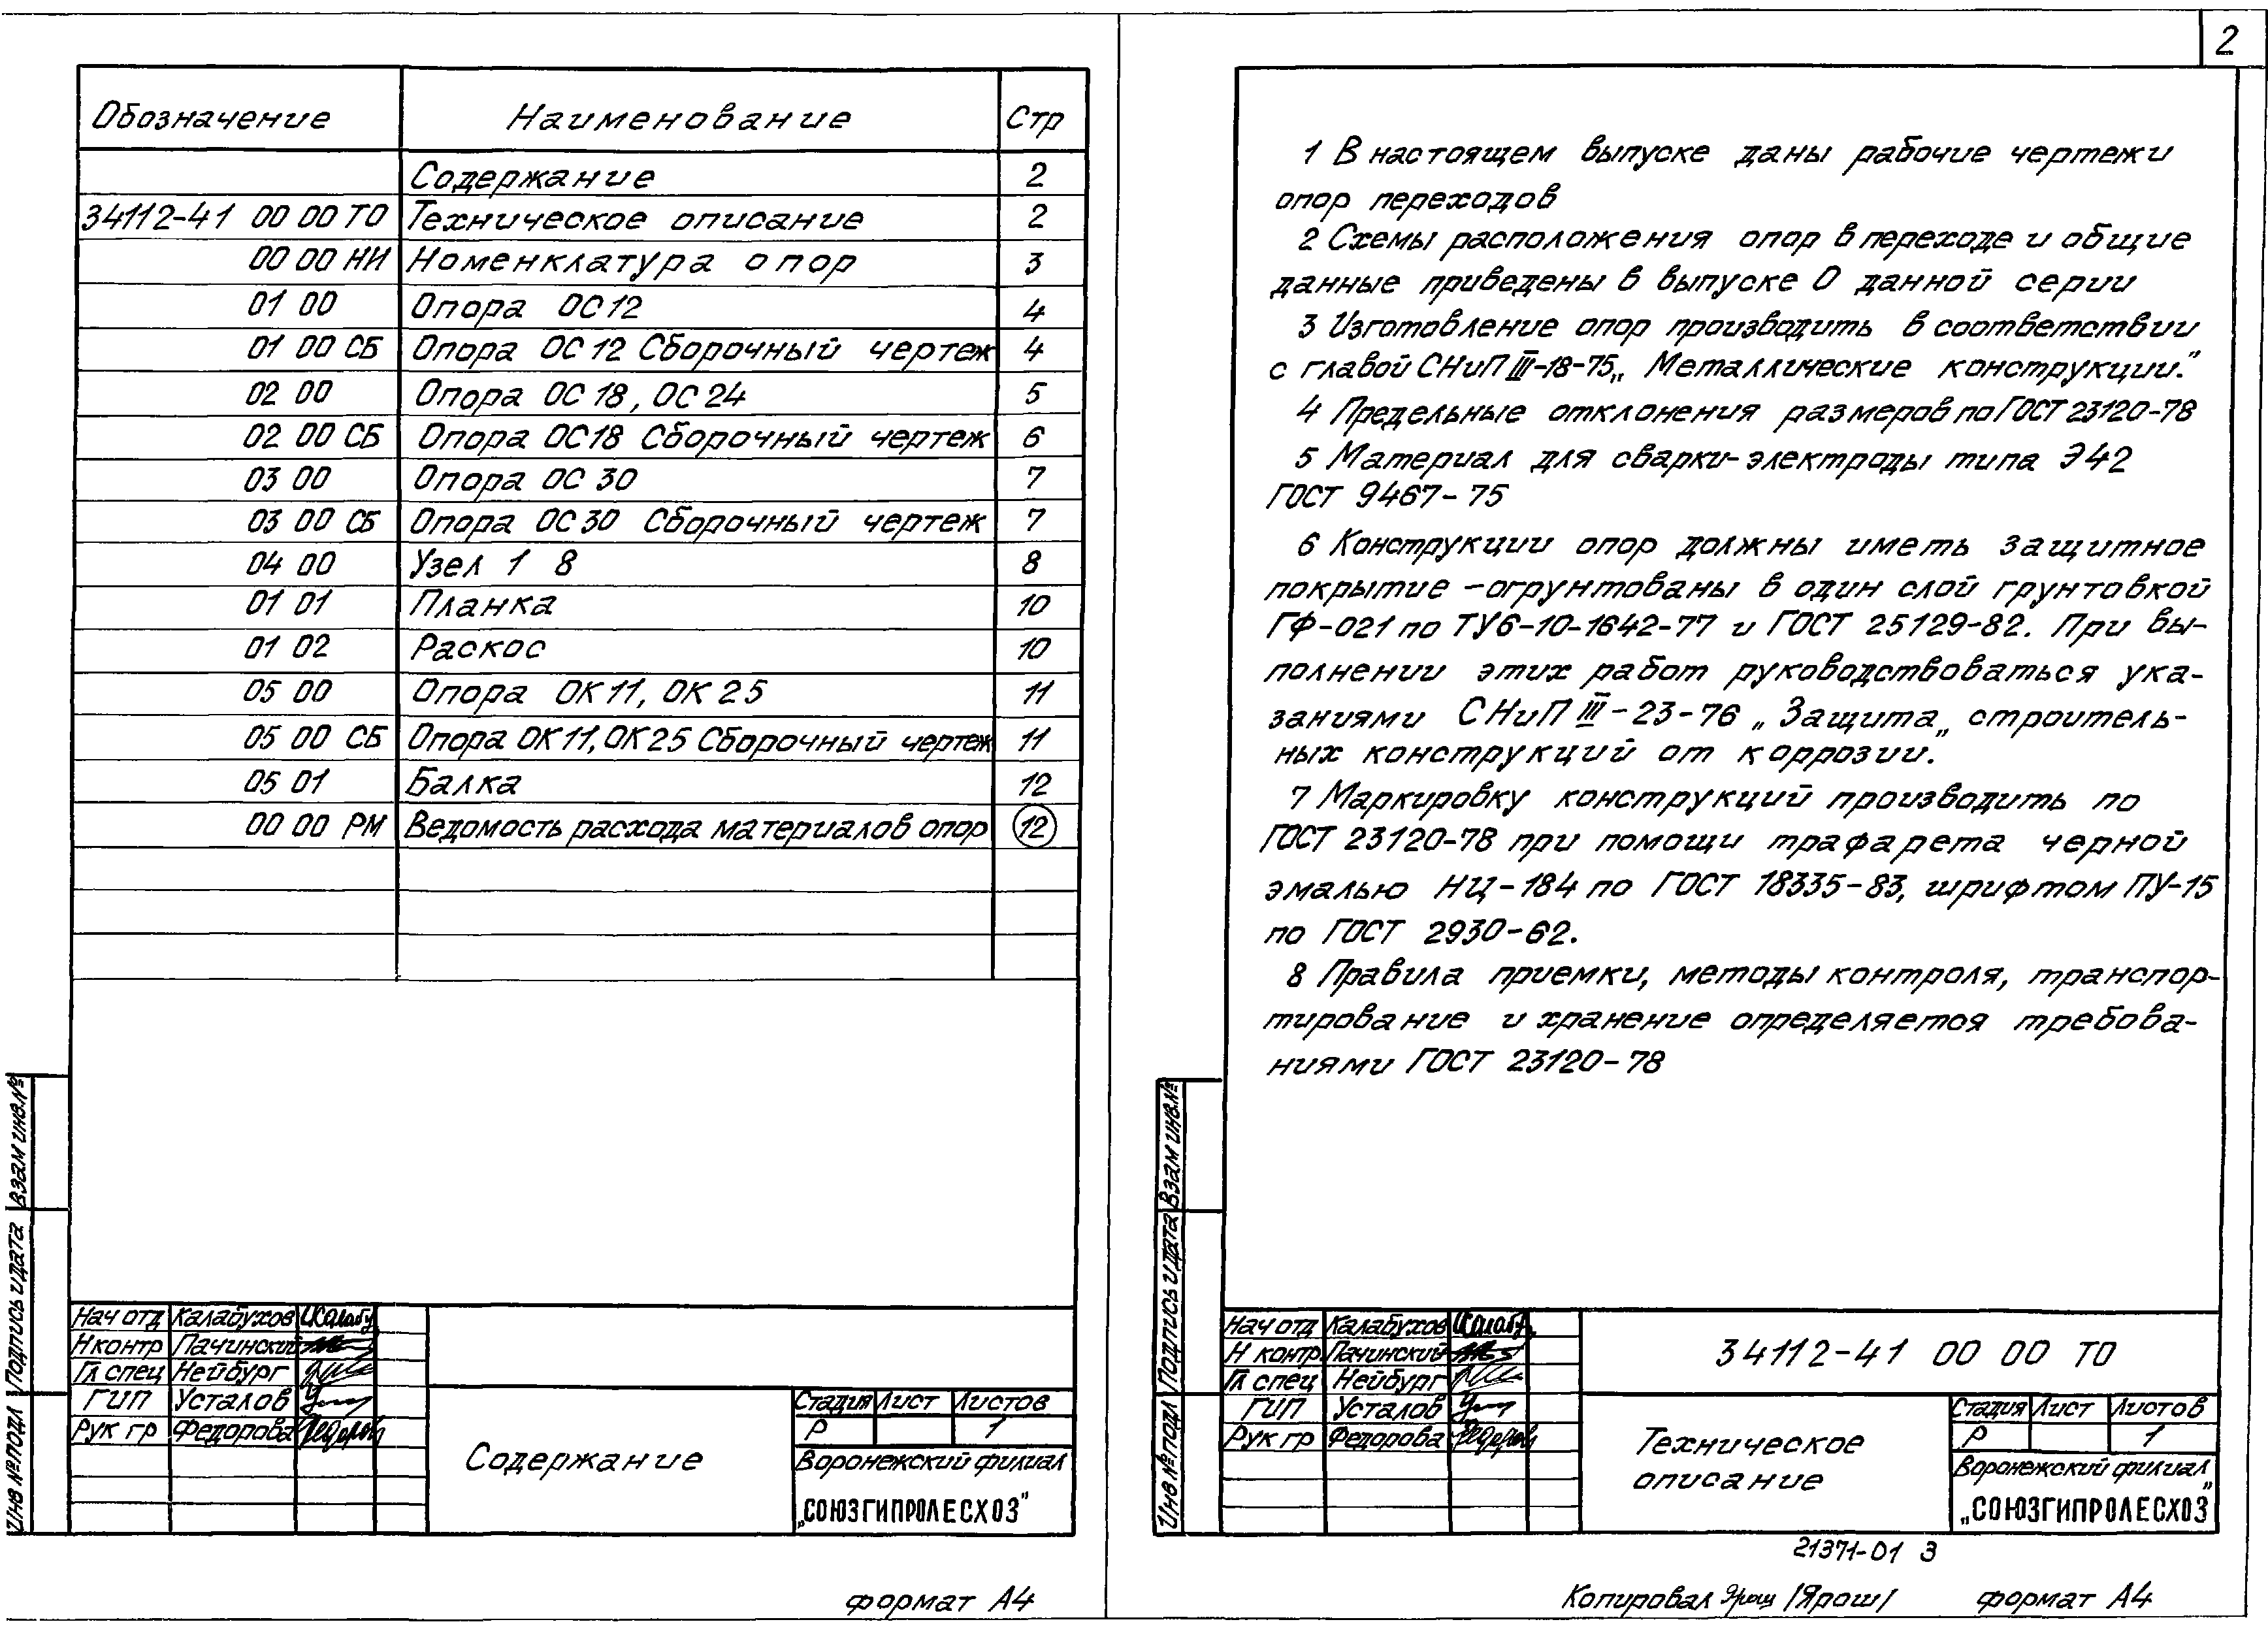 2
Обозначение Наименование Стр
Содержание 2
34112-41 00 00 ТО Техническое описание 2
00 00 НИ Номенклатура опор 3
01 00 Опора ОС12 4
01 00 СБ Опора ОС 12 Сборочный чертеж 4
02 00 Опора ОС 18, ОС 24 5
02 00 СБ Опора ОС18 Сборочный чертеж 6
03 00 Опора ОС 30 7
03 00 СБ Опора ОС 30 Сборочный чертеж 7
04 00 Узел 1 8 8
01 01 Планка 10
01 02 Раскос 10
05 00 Опора ОК 11, ОК 25 11
05 00 СБ Опора ОК 11, ОК 25 Сборочный чертеж 11
05 01 Балка 12
00 00 РМ Ведомость расхода материалов опор 12
Взам инв.№
Подпись и дата
Инв № подл
Нач отд Калабухов
Н контр Пачинский
Гл спец Нейбург
ГИП Усталов
Рук гр Федорова
Стадия Лист Листов
Р 1
Содержание
Воронежский филиал
„СОЮЗГИПРОЛЕСХОЗ"
формат А4
1 В настоящем выпуске даны рабочие чертежи
опор переходов
2 Схемы расположения опор в переходе и общие
данные приведены в выпуске 0 данной серии
3 Изготовление опор производить в соответствии
с главой СНиП III-18-75„ Металлические конструкции."
4 Предельные отклонения размеров по ГОСТ 23120-78
5 Материал для сварки-электроды типа Э42
ГОСТ 9467-75
6 Конструкции опор должны иметь защитное
покрытие -огрунтованы в один слой грунтовкой
ГФ-021 по ТУ6-10-1642-77 и ГОСТ 25129-82. При вы-
полнении этих работ руководствоваться ука-
заниями СНиП III-23-76 „ Защита„ строитель-
ных конструкций от коррозии.
7 Маркировку конструкций производить по
ГОСТ 23120-78 при помощи трафарета черной
эмалью НЦ-184 по ГОСТ 18335-83, шрифтом ПУ-15
по ГОСТ 2930-62.
8 Правила приемки, методы контроля, транспор-
тирование и хранение определяется требова-
ниями ГОСТ 23120-78
Взам инв.№
Подпись и дата
Инв № подл
Нач отд Калабухов
Н контр Пачинский
Гл спец Нейбург
ГИП Усталов
Рук гр Федорова
34112-41 00 00 ТО
Стадия Лист Листов
Р 1
Техническое
описание
Воронежский филиал
„СОЮЗГИПРОЛЕСХОЗ"
21371-01 3
Копировал Ярош /Ярош/ формат А4